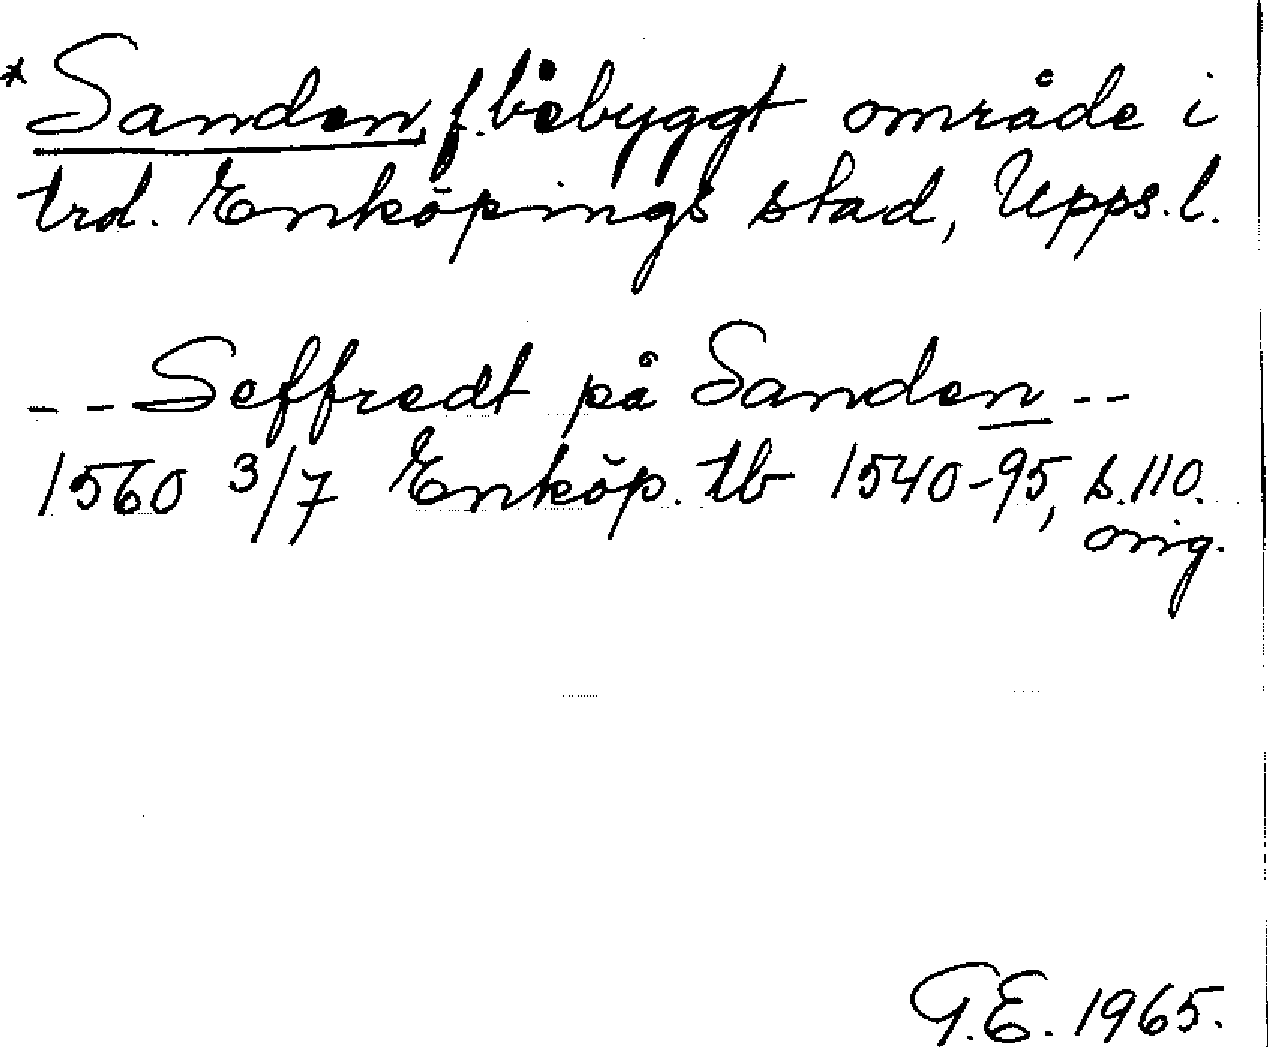 *Sanden, f. bebyggt område i
trd. Enköpings stad, Upps. l.
-- Seffredt på Sanden --
1560 3/7 Enköp. tb 1540-95, s. 110.
orig.
G.E. 1965.